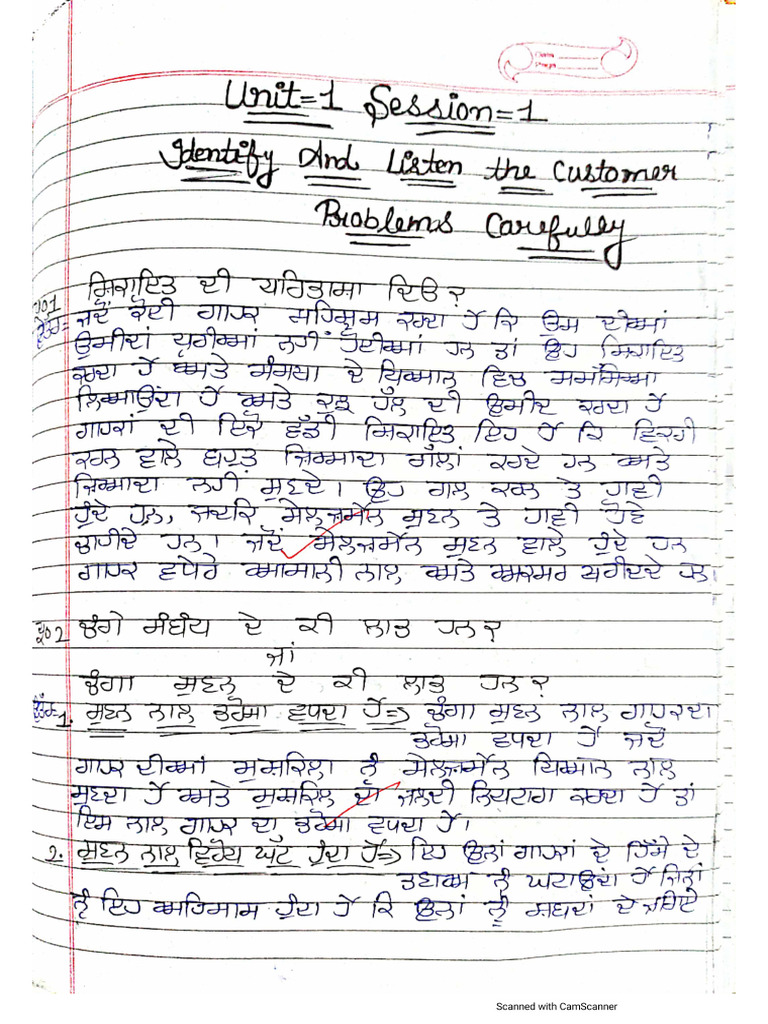 Unit=1 Session=1
Identify And Listen the Customer
Problems Carefully
ਪ੍ਰ01 ਸ਼ਿਕਾਇਤ ਦੀ ਪਰਿਭਾਸ਼ਾ ਦਿਓ ?
ਉੱਤਰ= ਜਦੋਂ ਕੋਈ ਗਾਹਕ ਮਹਿਸੂਸ ਕਰਦਾ ਹੈ ਕਿ ਉਸ ਦੀਆਂ
ਉਮੀਦਾਂ ਪੂਰੀਆਂ ਨਹੀਂ ਹੋਈਆਂ ਹਨ ਤਾਂ ਉਹ ਸ਼ਿਕਾਇਤ
ਕਰਦਾ ਹੈ ਅਤੇ ਸੰਸਥਾ ਦੇ ਧਿਆਨ ਵਿਚ ਸਮੱਸਿਆ
ਲਿਆਉਂਦਾ ਹੈ ਅਤੇ ਕੁਝ ਹੱਲ ਦੀ ਉਮੀਦ ਕਰਦਾ ਹੈ
ਗਾਹਕਾਂ ਦੀ ਇਕੋ ਵੱਡੀ ਸ਼ਿਕਾਇਤ ਇਹ ਹੈ ਕਿ ਵਿਕਰੀ
ਕਰਨ ਵਾਲੇ ਬਹੁਤ ਜ਼ਿਆਦਾ ਗੱਲਾਂ ਕਰਦੇ ਹਨ ਅਤੇ
ਜ਼ਿਆਦਾ ਨਹੀਂ ਸੁਣਦੇ। ਉਹ ਗਲ ਕਰਨ ਤੇ ਹਾਵੀ
ਹੁੰਦੇ ਹਨ, ਜਦਕਿ ਸੇਲਜ਼ਮੈਨ ਸੁਣਨ ਤੇ ਹਾਵੀ ਹੋਣੇ
ਚਾਹੀਦੇ ਹਨ। ਜਦੋਂ ਸੇਲਜ਼ਮੈਨ ਸੁਣਨ ਵਾਲੇ ਹੁੰਦੇ ਹਨ
ਗਾਹਕ ਵਧੇਰੇ ਆਸਾਨੀ ਨਾਲ ਅਤੇ ਅਕਸਰ ਖਰੀਦਦੇ ਹਨ।
ਪ੍ਰ02 ਚੰਗੇ ਸੰਬੰਧ ਦੇ ਕੀ ਲਾਭ ਹਨ ?
ਜਾਂ
ਚੰਗਾ ਸੁਣਨ ਦੇ ਕੀ ਲਾਭ ਹਨ ?
ਉੱਤਰ=1. ਸੁਣਨ ਨਾਲ ਭਰੋਸਾ ਵਧਦਾ ਹੈ=> ਚੰਗਾ ਸੁਣਨ ਨਾਲ ਗਾਹਕਦਾ
ਭਰੋਸਾ ਵਧਦਾ ਹੈ ਜਦੋਂ
ਗਾਹਕ ਦੀਆਂ ਮੁਸ਼ਕਿਲਾ ਨੂੰ ਸੇਲਜ਼ਮੈਨ ਧਿਆਨ ਨਾਲ
ਸੁਣਦਾ ਹੈ ਅਤੇ ਮੁਸ਼ਕਿਲ ਦਾ ਜਲਦੀ ਨਿਪਟਾਰਾ ਕਰਦਾ ਹੈ ਤਾਂ
ਇਸ ਨਾਲ ਗਾਹਕ ਦਾ ਭਰੋਸਾ ਵਧਦਾ ਹੈ।
2. ਸੁਣਨ ਨਾਲ ਵਿਰੋਧ ਘੱਟ ਹੁੰਦਾ ਹੈ=> ਇਹ ਉਨਾਂ ਗਾਹਕਾਂ ਦੇ ਹਿੱਸੇ ਦੇ
ਤਣਾਅ ਨੂੰ ਘਟਾਉਂਦਾ ਹੈ ਜਿਨਾਂ
ਨੂੰ ਇਹ ਅਹਿਸਾਸ ਹੁੰਦਾ ਹੈ ਕਿ ਉਨਾਂ ਨੂੰ ਸ਼ਬਦਾਂ ਦੇ ਜ਼ਰੀਏ
Scanned with CamScanner